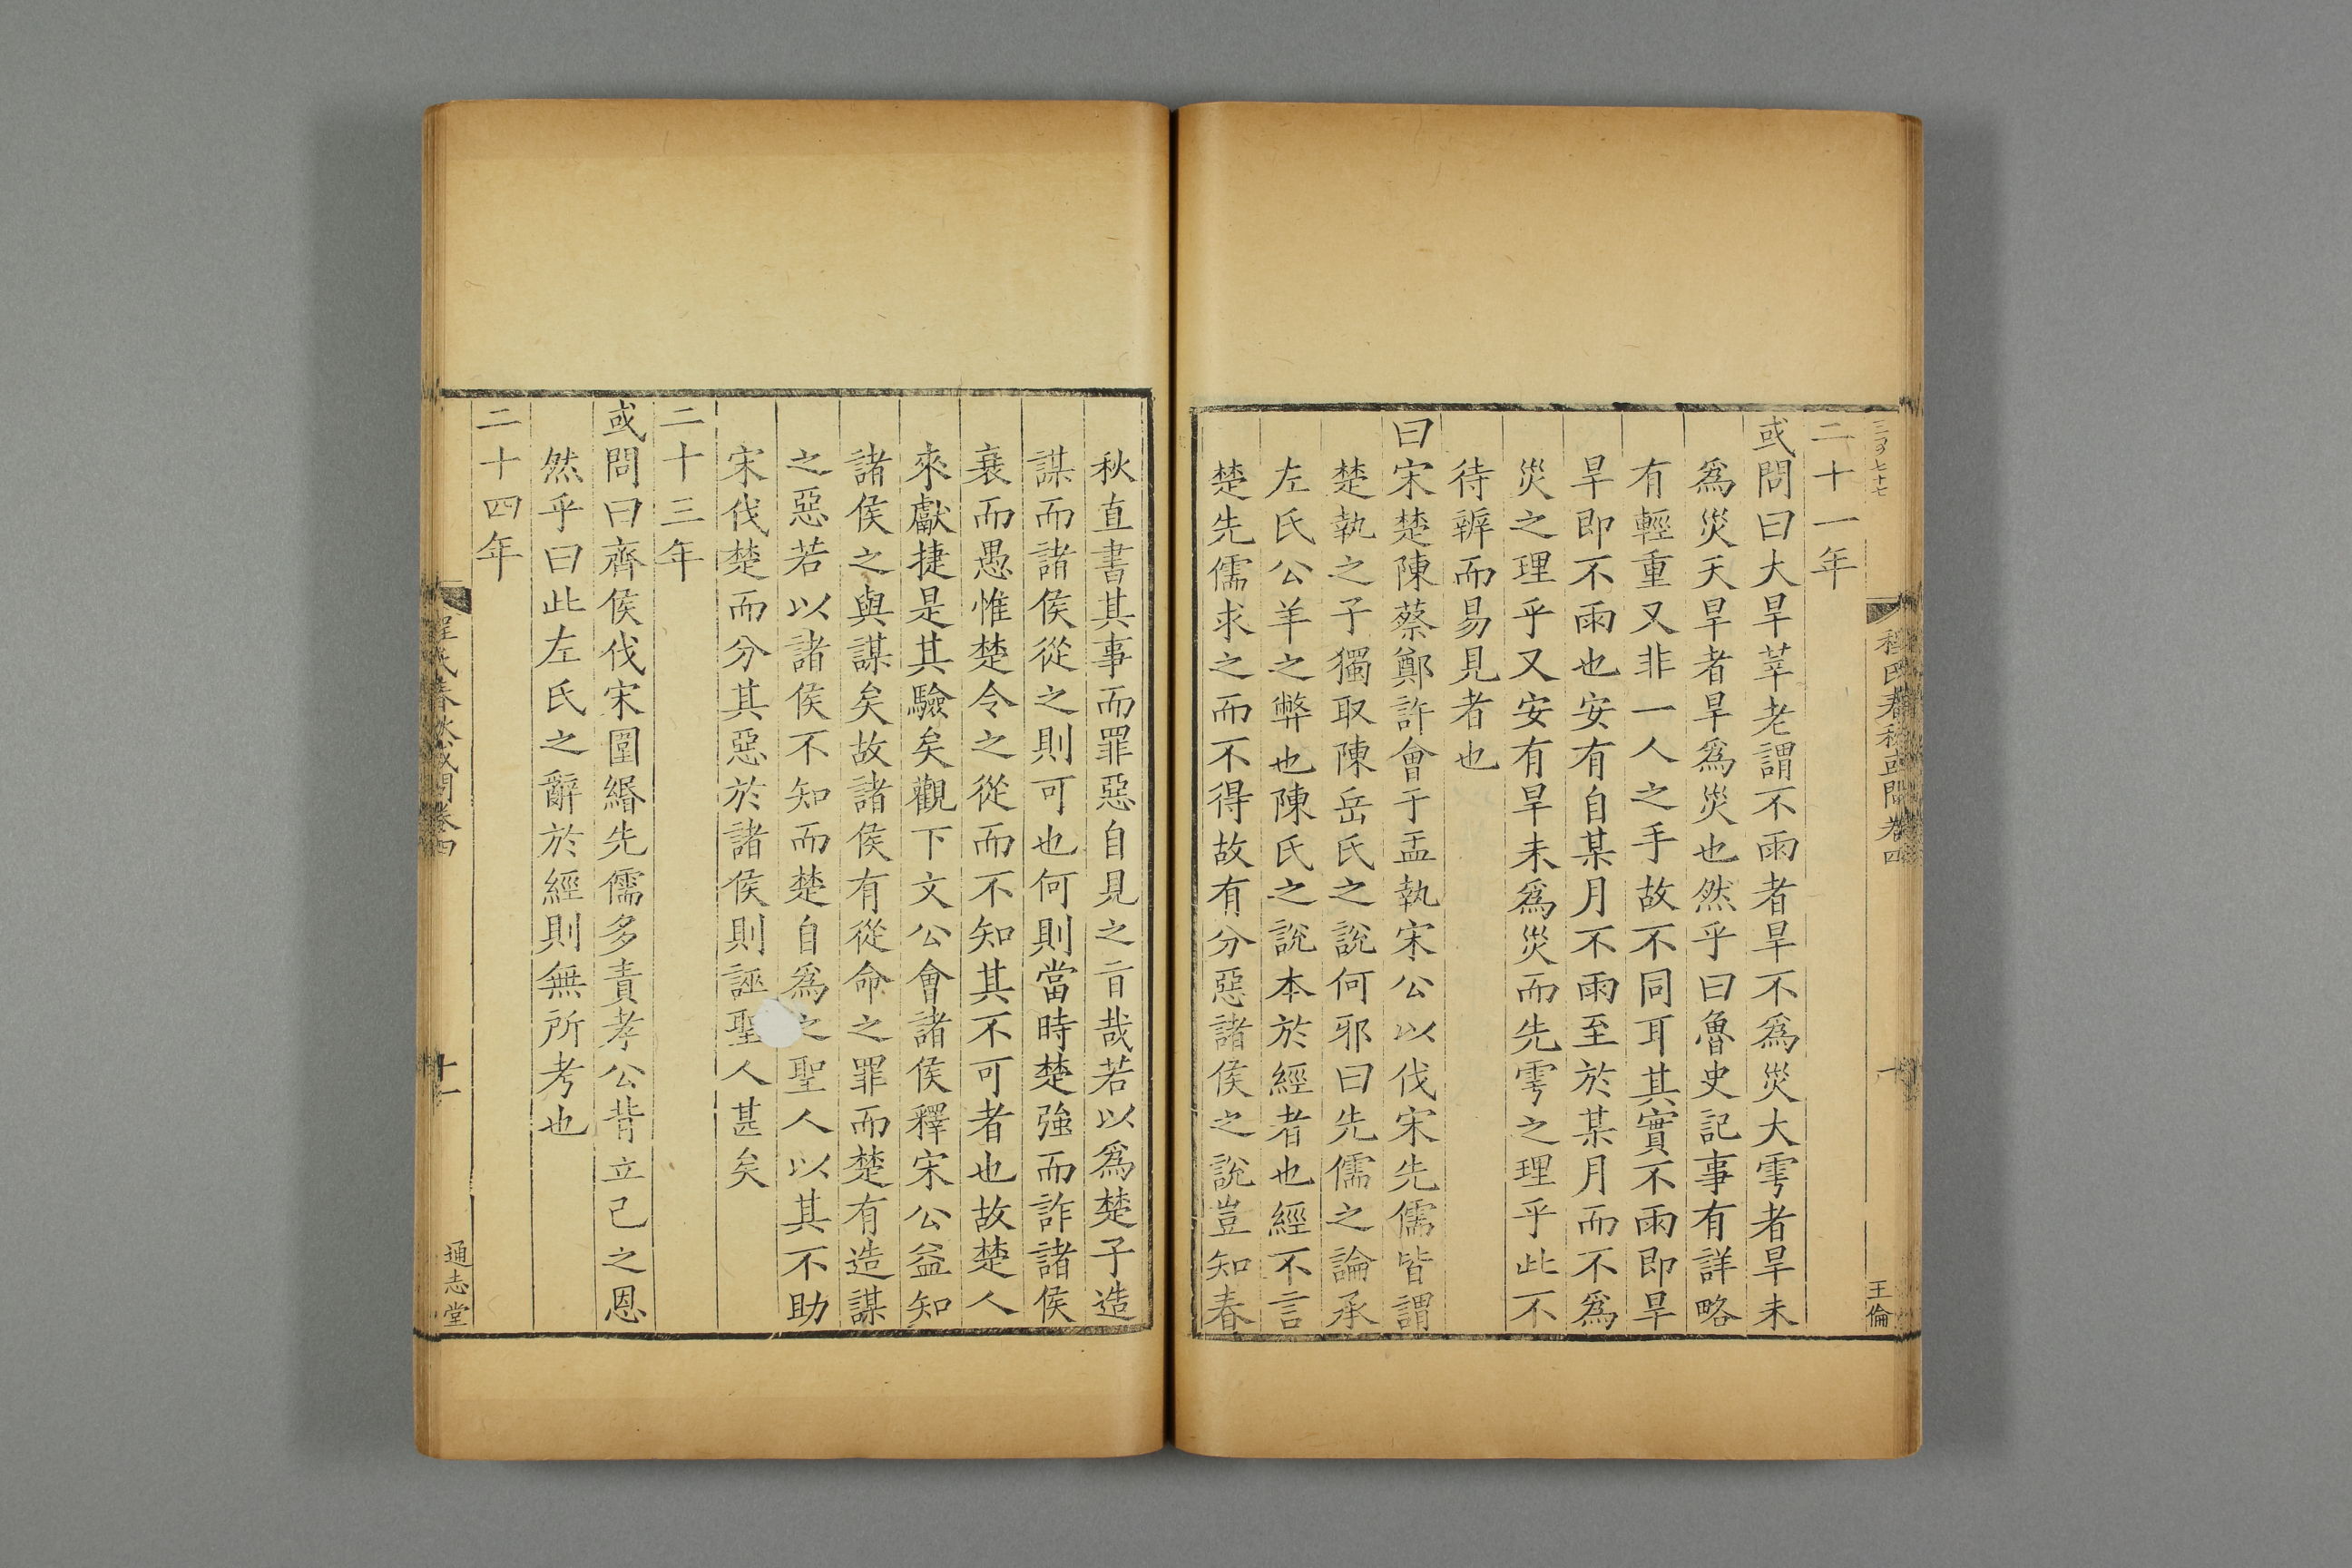 三百七十七
程氏春秋或問卷四
十
王倫
二十一年
或問曰大旱莘老謂不雨者旱不爲災大雩者旱未
爲災天旱者旱爲災也然乎曰魯史記事有詳略
有輕重又非一人之手故不同耳其實不雨即旱
旱即不雨也安有自某月不雨至於某月而不爲
災之理乎又安有旱未爲災而先雩之理乎此不
待辨而易見者也
曰宋楚陳蔡鄭許會于盂執宋公以伐宋先儒皆謂
楚執之子獨取陳岳氏之說何邪曰先儒之論承
左氏公羊之弊也陳氏之說本於經者也經不言
楚先儒求之而不得故有分惡諸侯之說豈知春
秋直書其事而罪惡自見之旨哉若以爲楚子造
謀而諸侯從之則可也何則當時楚強而詐諸侯
衰而愚惟楚令之從而不知其不可者也故楚人
來獻捷是其驗矣觀下文公會諸侯釋宋公益知
諸侯之與謀矣故諸侯有從命之罪而楚有造謀
之惡若以諸侯不知而楚自爲之聖人以其不助
宋伐楚而分其惡於諸侯則誣聖人甚矣
二十三年
或問曰齊侯伐宋圍緡先儒多責孝公背立己之恩
然乎曰此左氏之辭於經則無所考也
二十四年
程氏春秋或問卷四
十一
通志堂